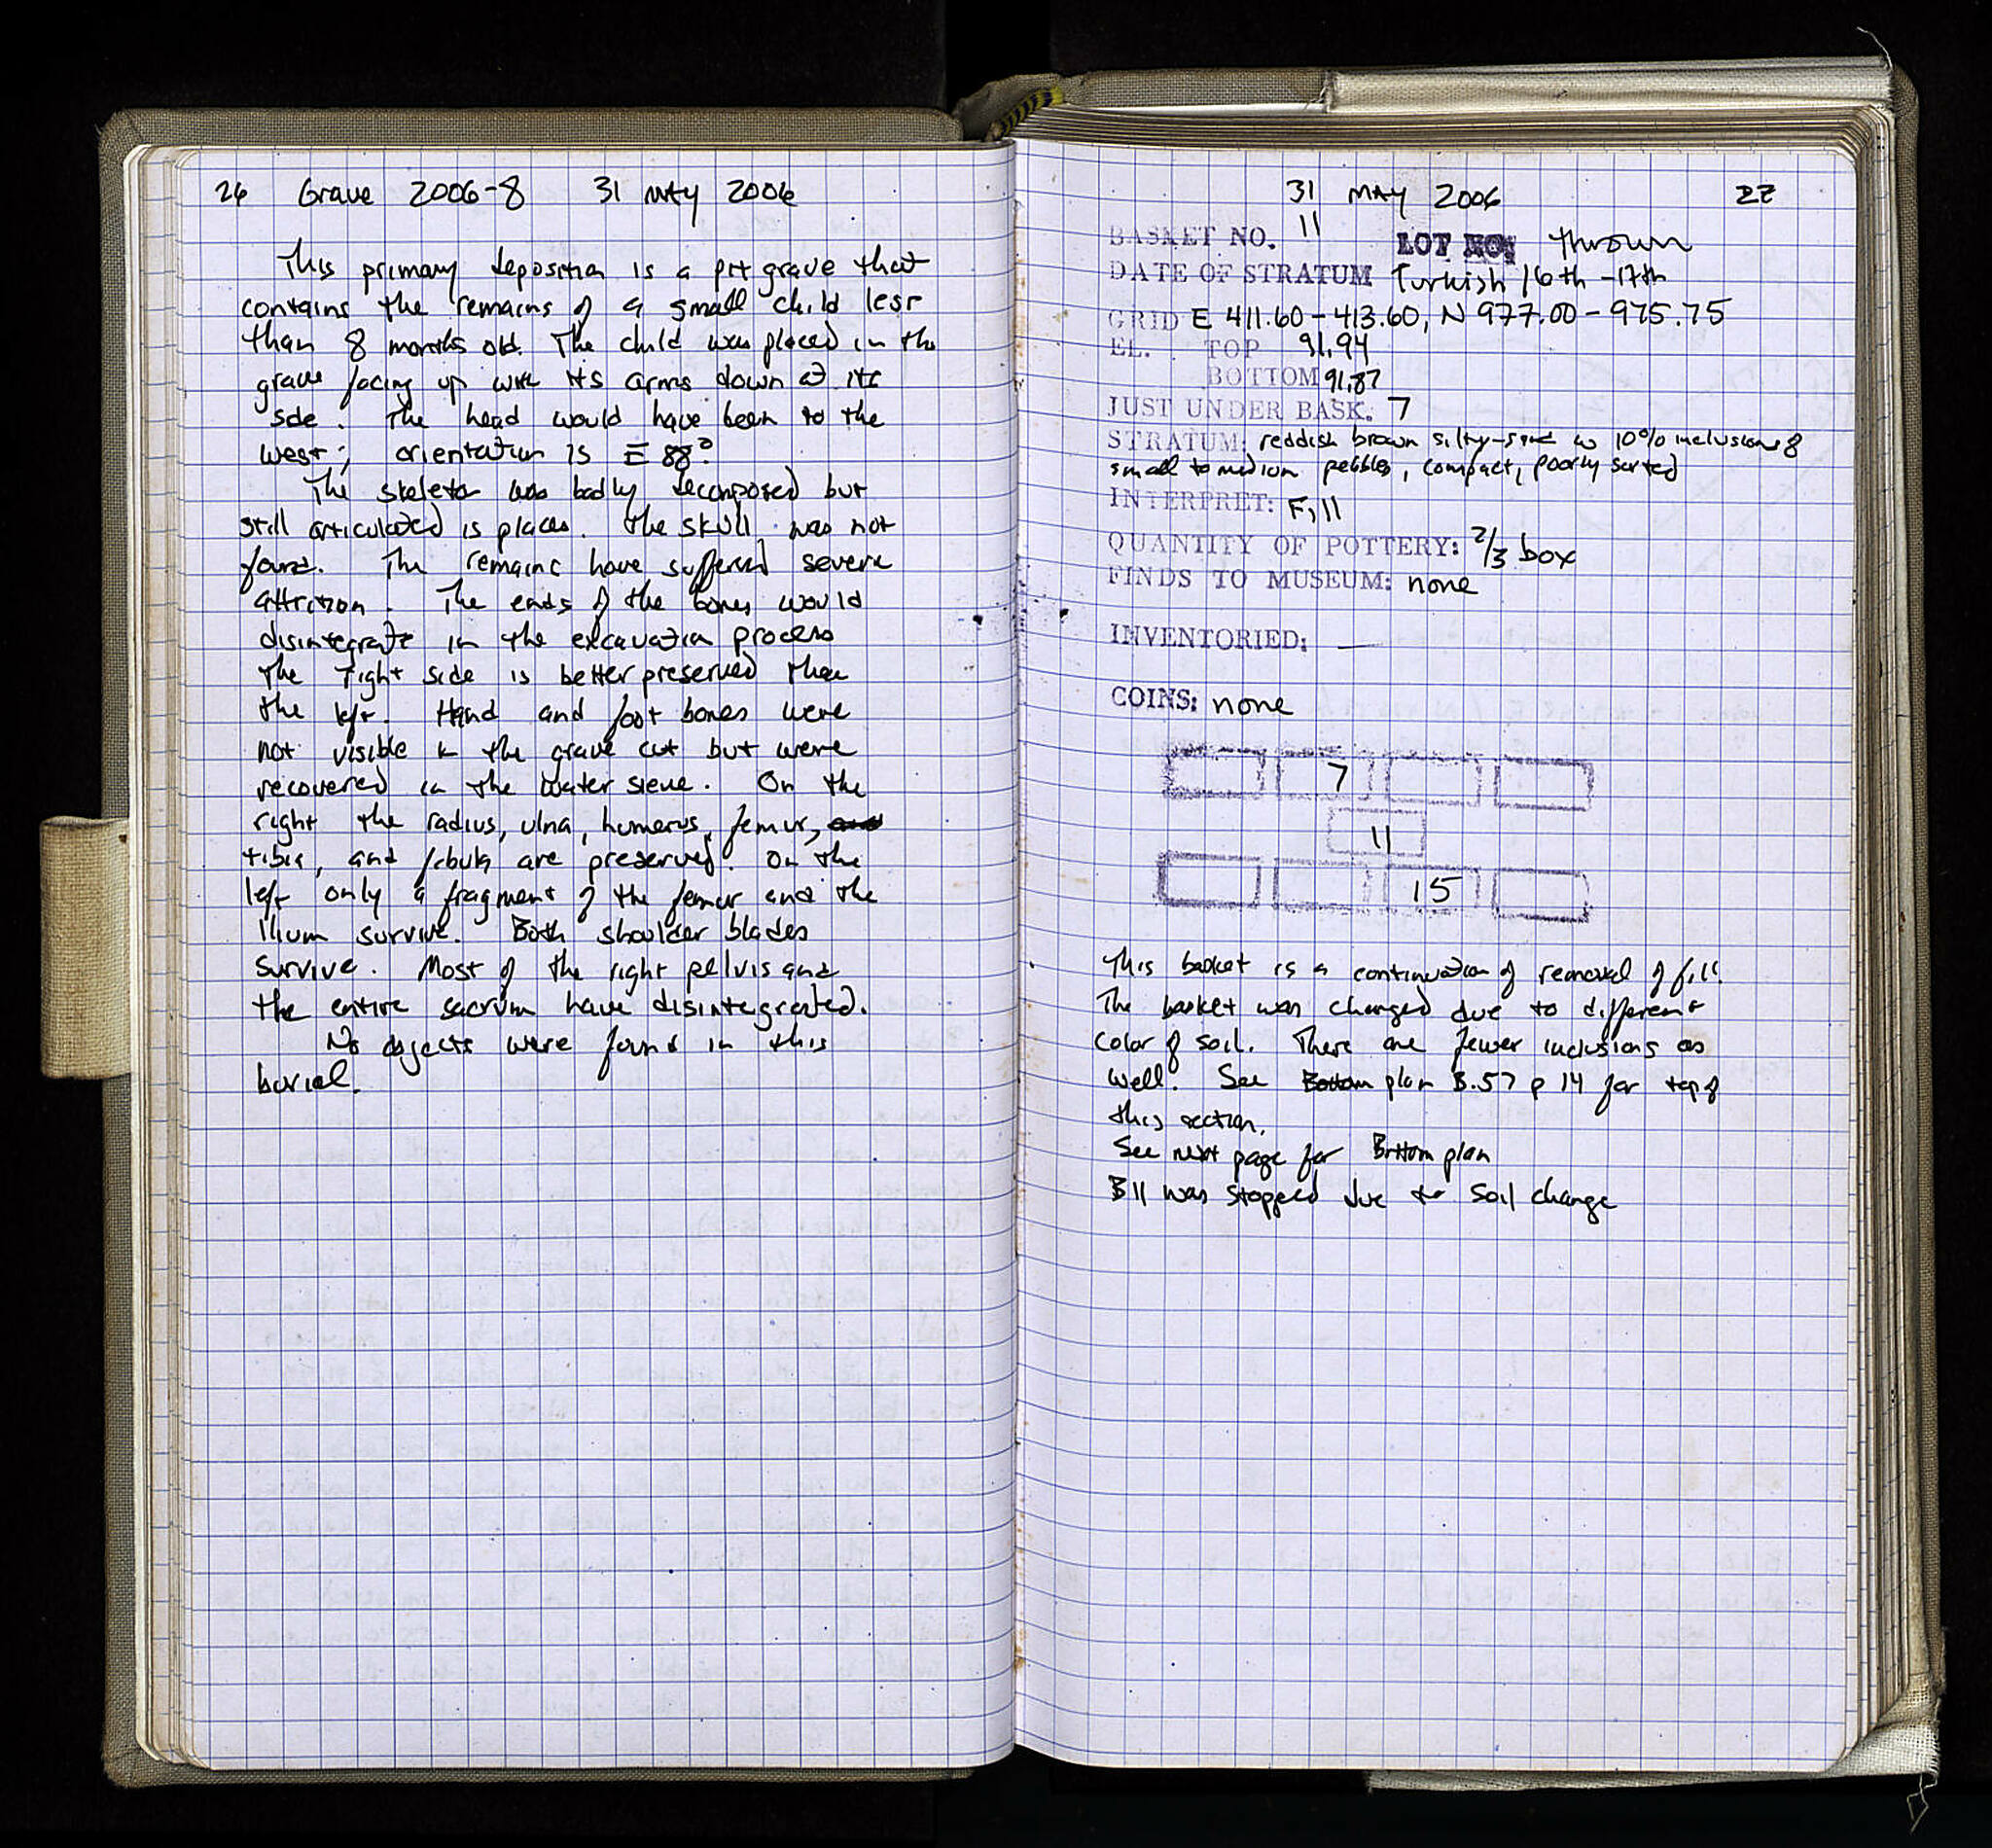 26 Grave 2006-8 31 MAY 2006
This primary deposition is a pit grave that
contains the remains of a small child less
than 8 months old. The child was placed in the
grave facing up with its arms down at its
side. The head would have been to the
west; orientation is E 88°.
The skeleton was badly decomposed but
still articulated is places. The skull was not
found. The remains have suffered severe
attrition. The ends of the bones would
disintegrate in the excavation process
The right side is better preserved than
the left. Hand and foot bones were
not visible in the grave cut but were
recovered in the water sieve. On the
right the radius, ulna, humerus, femur, and
tibia, and fibula are preserved. On the
left only a fragment of the femur and the
Ilium survive. Both shoulder blades
survive. Most of the right pelvis and
the entire sacrum have disintegrated.
No objects were found in this
burial.
31 MAY 2006
BASKET NO. 11 LOT NO: thrown
DATE OF STRATUM Turkish 16th-17th
GRID E 411.60-413.60, N 977.00-975.75
EL. TOP 91.94
BOTTOM 91.87
JUST UNDER BASK. 7
STRATUM: reddish brown silty-sand w 10% inclusions of
small to medium pebbles, compact, poorly sorted
INTERPRET: Fill
QUANTITY OF POTTERY: 2/3 box
FINDS TO MUSEUM: none
INVENTORIED: —
COINS: none
7
11
15
This basket is a continuation of removal of fill.
The basket was changed due to different
color of soil. There are fewer inclusions as
well. See Bottom plan B.57 p 14 for top of
this section.
See next page for Bottom plan
B11 was stopped due to soil change